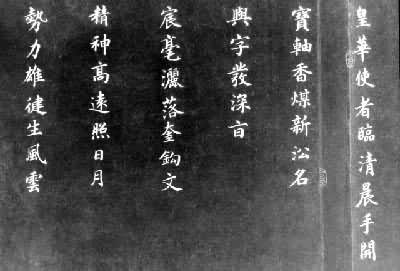 皇華使者臨清晨手開
寶軸香煤新沿名
興字發深旨
宸毫灑落奎鉤文
精神高遠照日月
勢力雄健生風雲